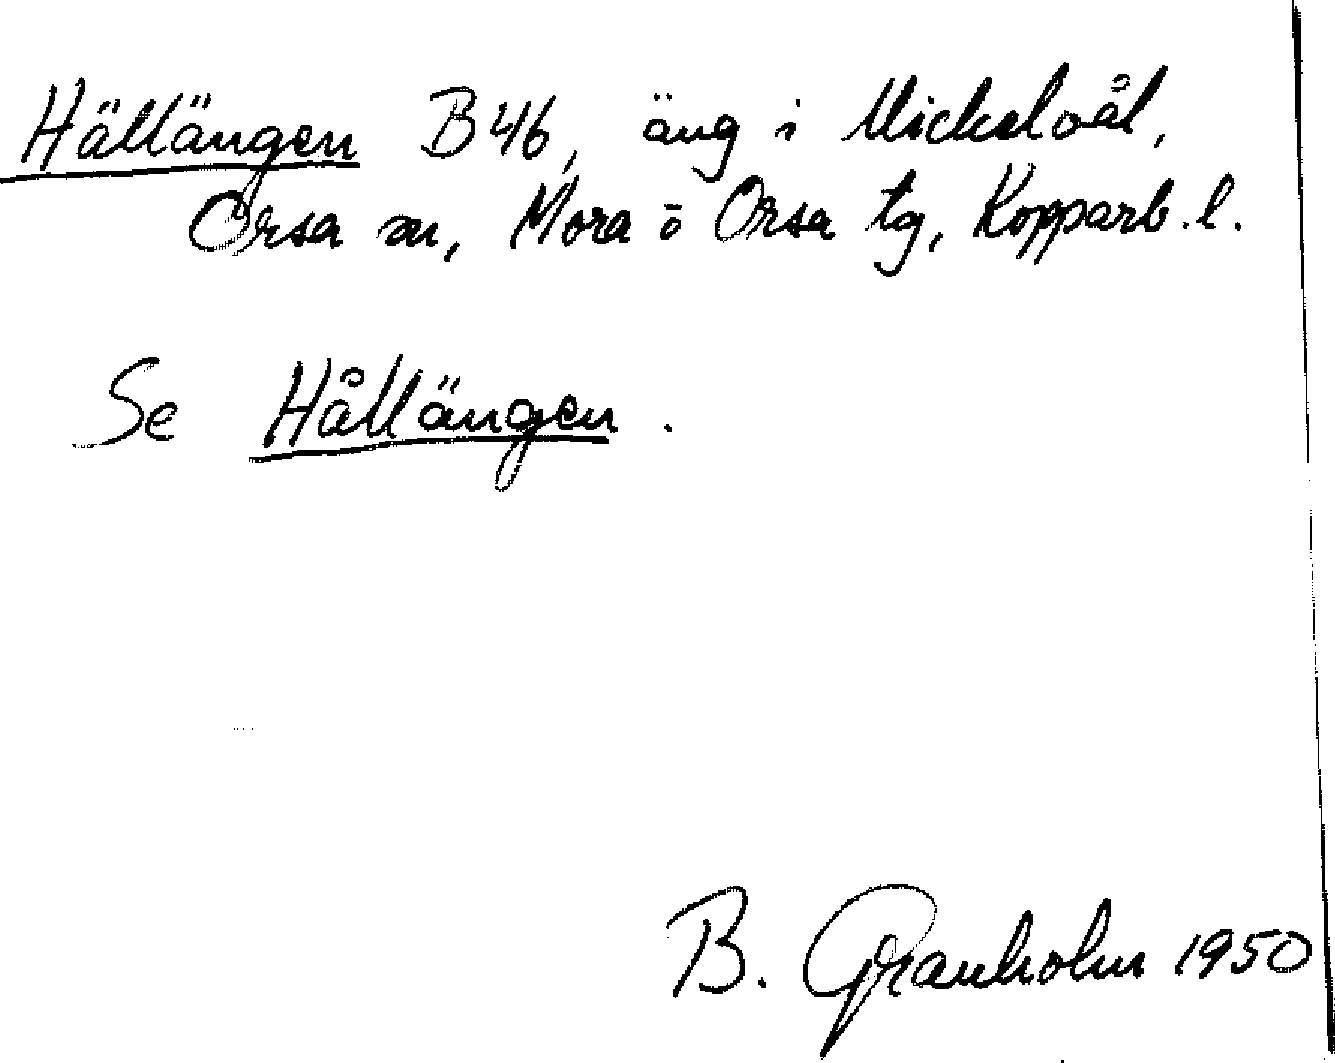 Hällängen B 46, äng i Mickelvål,
Orsa sn, Mora o Orsa tg, Kopparb. l.
Se Hållängen.
B. Granholm 1950